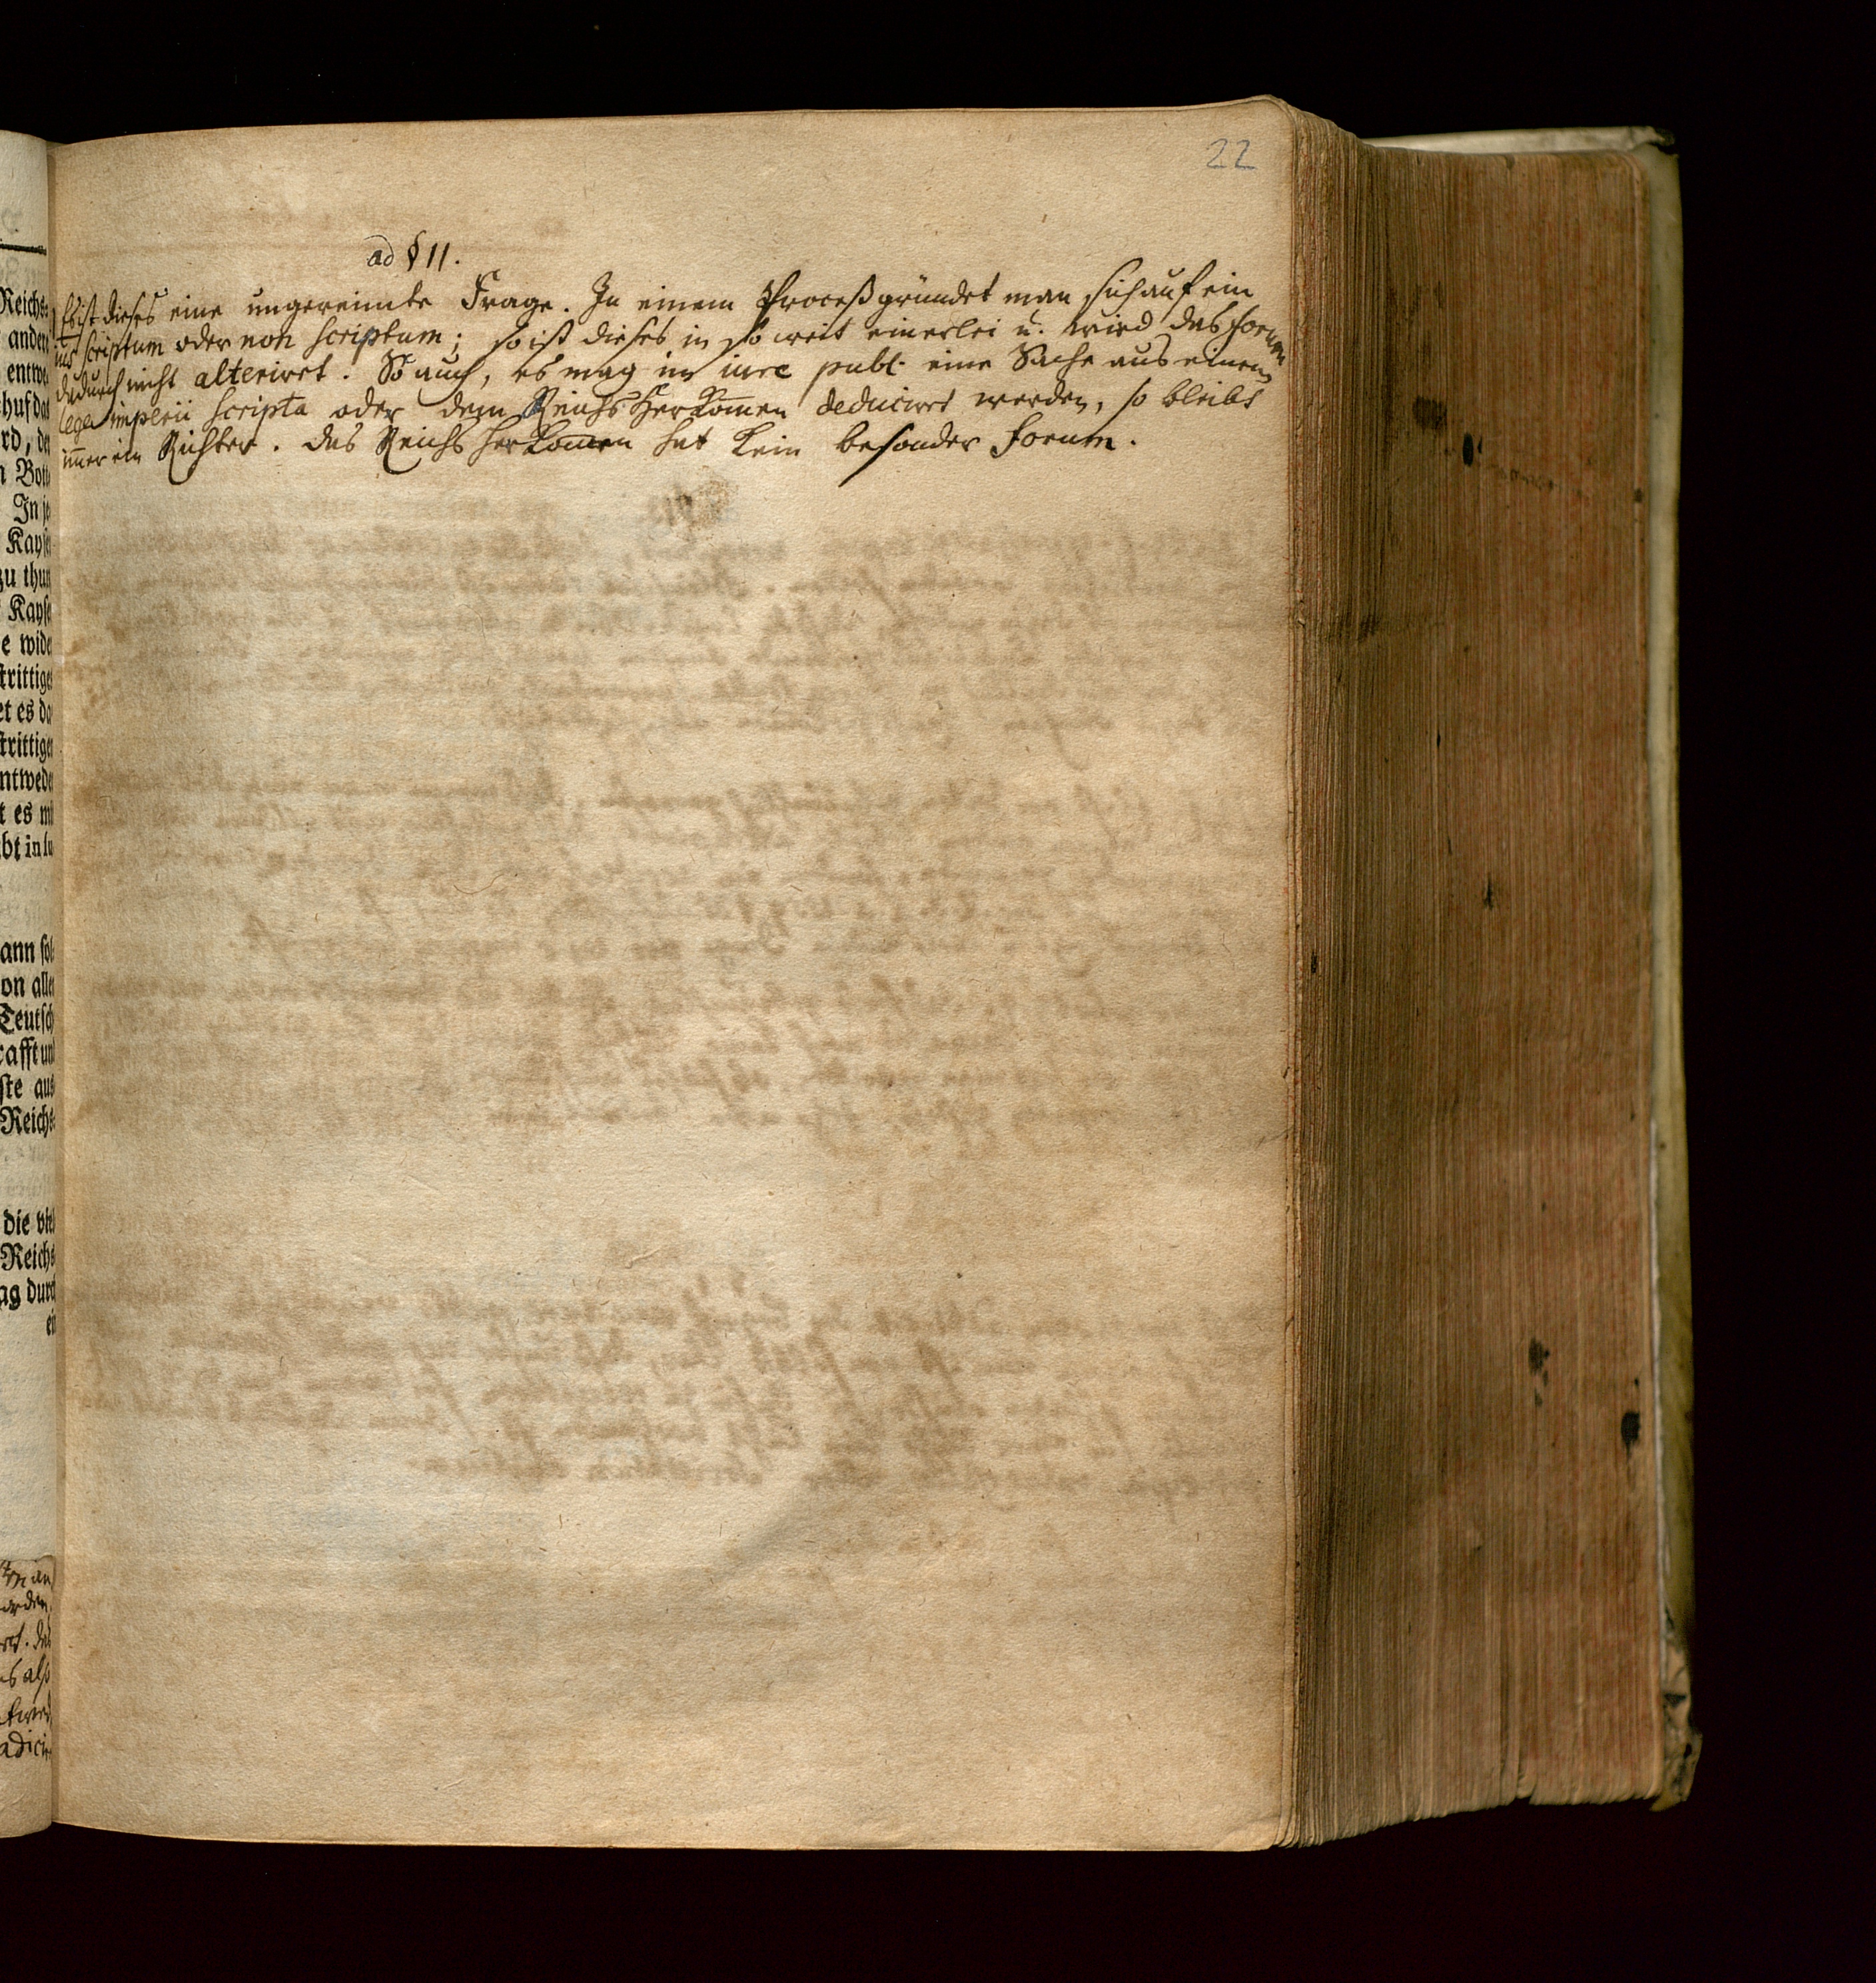 22
ad § 11.
Es ist dieses eine ungereimte Frage. In einem Proceß gründet man sich auf ein
ius scriptum oder non scriptum; so ist dieses in so weit einerlei u. wird das forum
dadurch nicht alteriret. So auch, es mag im iure publ. eine Sache aus einem
lege imperii scripta oder dem Reichs Herkom̅en deduciret werden, so bleibt
im̅er ein Richter. Das Reichs Herkom̅en hat kein besonder forum.
Reichs-
ander
entwe
huf das
rd, de
n Bott
In je
Kayse
zu thun
Kayse
e wide
trittige
et es da
trittige
ntwede
t es mi
bt in lu
ann sol
on alle
Teutsch
rafft und
ste aus
Reichs-
die vie
Reichs
ag durch
ei
man
s also
adici